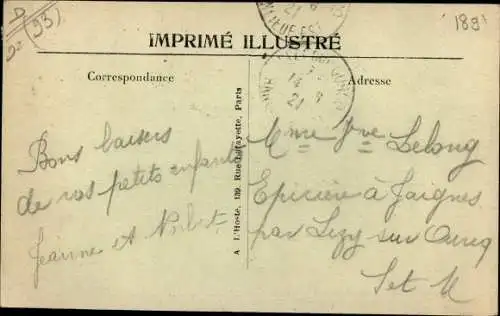 D
(93)
1891
IMPRIMÉ ILLUSTRÉ
Correspondance
Adresse
14 8
21
A L'Hoste, 139, Rue Lafayette, Paris
Bons baisers
de vos petits enfants
Jeanne et Norbert
Mme Vve Lelong
Epicière à Jaignes
par Lizy sur Ourcq
Set M